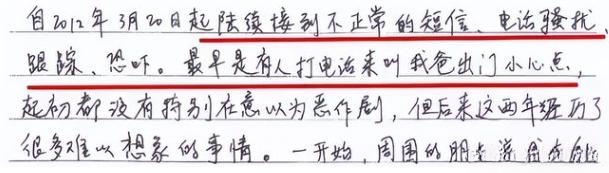 自2012年3月20日起陆续接到不正常的短信、电话骚扰、
跟踪、恐吓。最早是有人打电话来叫我爸出门小心点,
起初都没有特别在意以为恶作剧,但后来这两年经历了
很多难以想象的事情。一开始,周围的朋